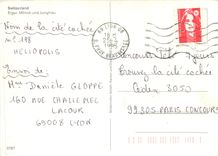 Switzerland
Eiger, Mönch und Jungfrau
Nom de la cité cachée
n° 178
HELIOPOLIS
Envoi de
Mme Danièle GLOPPE
160 RUE CHALIEMEL
LACOUR
69008 LYON
Concours Télé
Trouvez la cité cachée
Cedex 3050
99305 PARIS CONCOURS